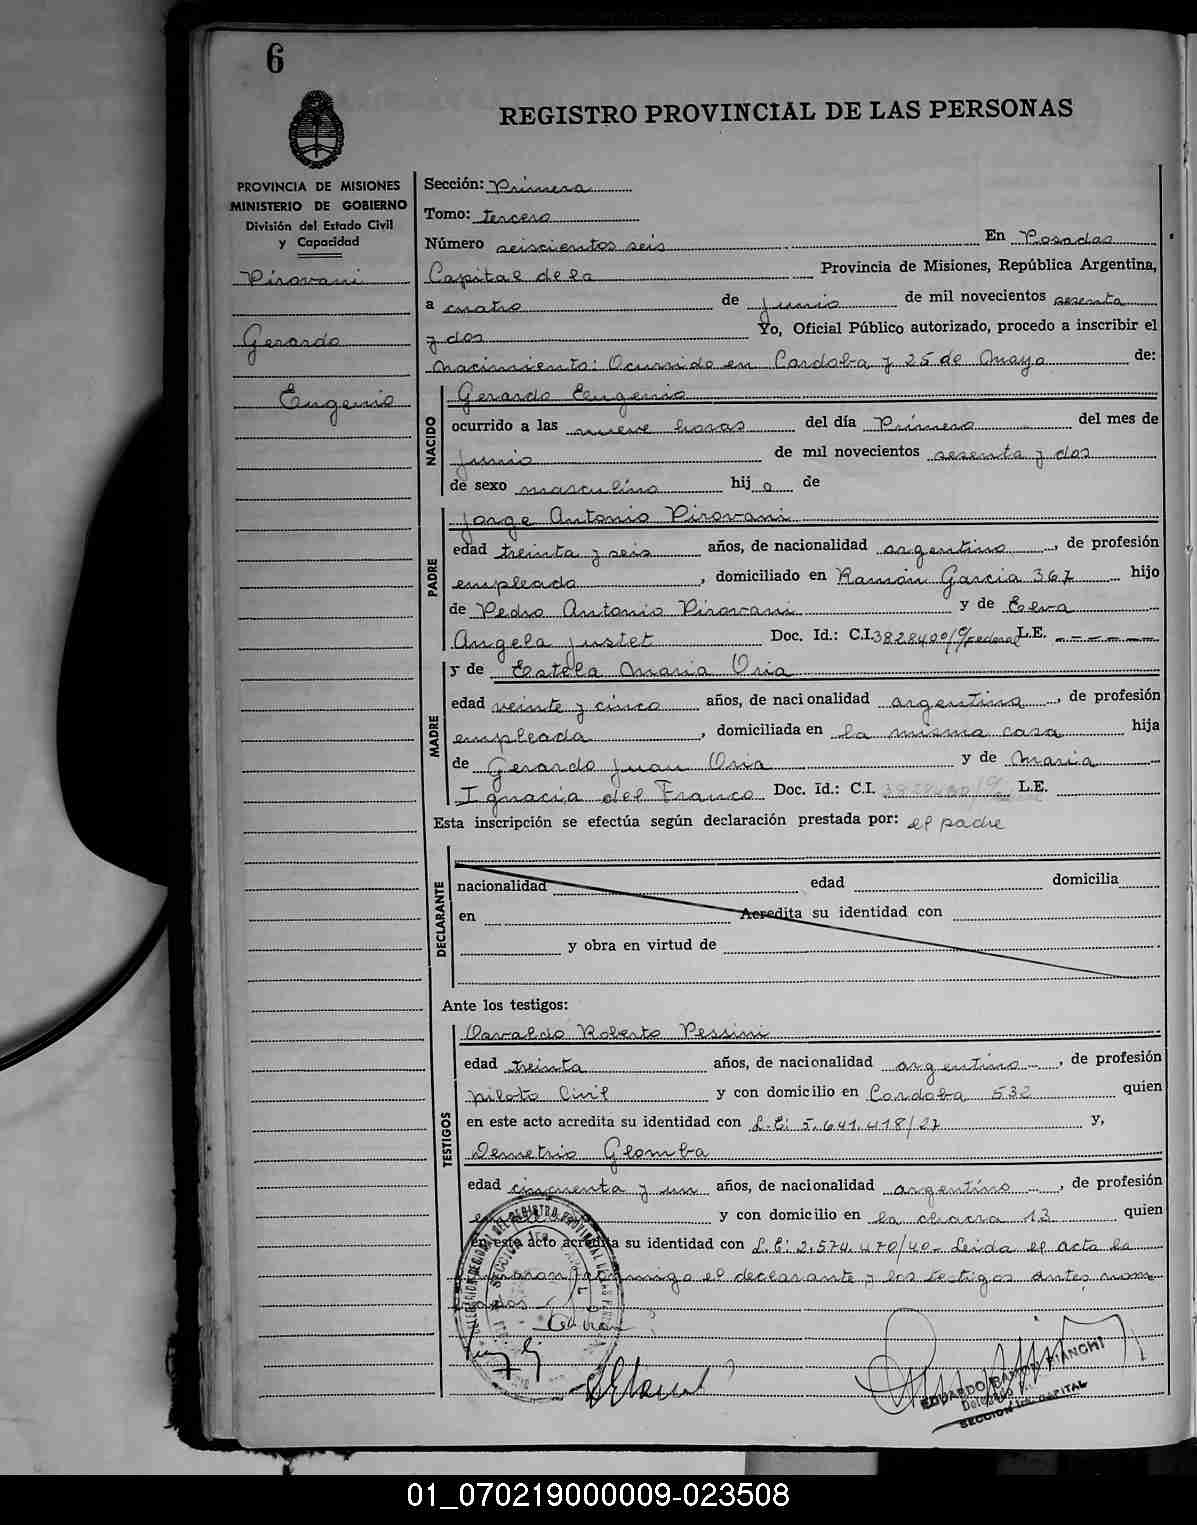 6
REGISTRO PROVINCIAL DE LAS PERSONAS
PROVINCIA DE MISIONES
MINISTERIO DE GOBIERNO
División del Estado Civil
y Capacidad
Pirovani
Gerardo
Eugenio
Sección: Primera
Tomo: tercero
Número seiscientos seis En Posadas
Capital de la Provincia de Misiones, República Argentina,
a cuatro de junio de mil novecientos sesenta
y dos Yo, Oficial Público autorizado, procedo a inscribir el
nacimiento: Ocurrido en Cordoba y 25 de Mayo de:
NACIDO
Gerardo Eugenio
ocurrido a las nueve horas del día Primero del mes de
junio de mil novecientos sesenta y dos
de sexo masculino hij o de
PADRE
Jorge Antonio Pirovani
edad treinta y seis años, de nacionalidad argentino, de profesión
empleado, domiciliado en Ramón Garcia 367 hijo
de Pedro Antonio Pirovani y de Elva
Angela Justet Doc. Id.: C.I. 3828400/C/Federal L.E. - - - - -
MADRE
y de Estela Maria Oria
edad veinte y cinco años, de nacionalidad argentina, de profesión
empleada, domiciliada en la misma casa hija
de Gerardo Juan Oria y de Maria
Ignacia del Franco Doc. Id.: C.I. L.E.
Esta inscripción se efectúa según declaración prestada por: el padre
DECLARANTE
nacionalidad edad domicilia
en Acredita su identidad con
y obra en virtud de
Ante los testigos:
TESTIGOS
Osvaldo Roberto Pessini
edad treinta años, de nacionalidad argentino, de profesión
piloto Civil y con domicilio en Cordoba 532 quien
en este acto acredita su identidad con L.E: 5.641.418/27 y,
Demetrio Glomba
edad cincuenta y un años, de nacionalidad argentino, de profesión
y con domicilio en la chacra 13 quien
en este acto acredita su identidad con L.E: 2.574.470/40- Leida el acta la
firmaron conmigo el declarante y los testigos antes nom-
brados
EDUARDO RAMON BIANCHI
Delegado
SECCION 1ra. CAPITAL
01_070219000009-023508